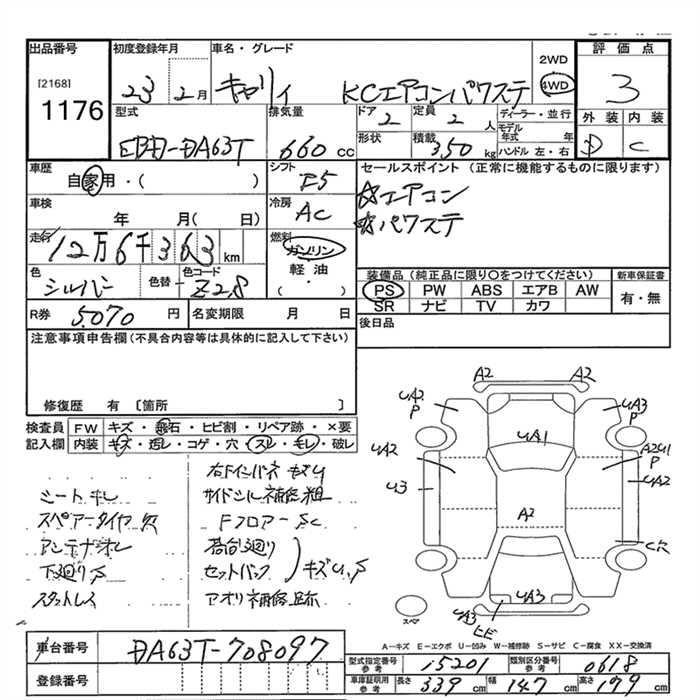 出品番号 初度登録年月 車名・グレード 2WD 評価点
[2168] 1176 23 2月 キャリィ KCエアコンパワステ 4WD 3
型式 排気量 ドア 定員 ディーラー・並行 外装 内装
EBD-DA63T 660cc 2 2人 モデル年式 年 D C
形状 積載 350kg ハンドル 左・右
車歴 シフト セールスポイント(正常に機能するものに限ります)
自家用・( ) F5 ☆エアコン
車検 冷房 ☆パワステ
年 月( 日) AC
走行 12万6千363km 燃料 ガソリン
軽油
・( )
色 シルバー 色替 - 色コード Z2S
装備品(純正品に限り○をつけてください) 新車保証書
PS PW ABS エアB AW 有・無
SR ナビ TV カワ
R券 5070円 名変期限 月 日 後日品
注意事項申告欄(不具合内容等は具体的に記入して下さい)
修復歴 有 〔箇所 〕
検査員 FW キズ・飛石・ヒビ割・リペア跡・×要
記入欄 内装 キズ・汚レ・コゲ・穴・スレ・キレ・破レ
シートキレ
スペアータイヤ欠
アンテナオレ
下廻りS
スタットレス
サイドシル補修粗
Fフロアー SC
荷台廻り
セットバック
アオリ補修跡
A2 A2
UA2 P UA3 P
UA1
UA2 A2U1 P
U3 UA2
A2
C穴
UA3
UA3 ヒビ
スペア
A-キズ E-エクボ U-凹み W-補修跡 S-サビ C-腐食 XX-交換済
車台番号 DA63T-708097
登録番号
型式指定番号 参考 15201 類別区分番号 参考 0618
車庫証明用 参考 長さ 339cm 幅 147cm 高さ 179cm